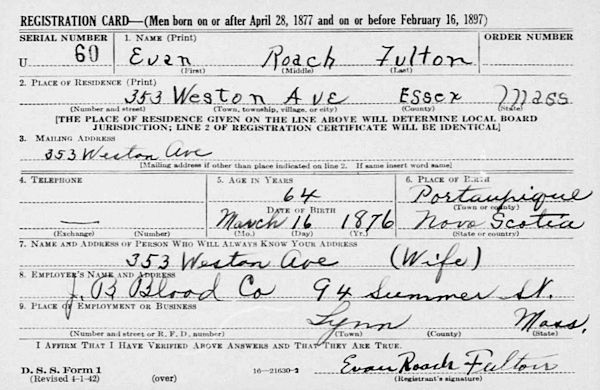 REGISTRATION CARD—(Men born on or after April 28, 1877 and on or before February 16, 1897)
SERIAL NUMBER 1. NAME (Print) ORDER NUMBER
U 60 Evan Roach Fulton
(First) (Middle) (Last)
2. PLACE OF RESIDENCE (Print)
353 Weston Ave Essex Mass
(Number and street) (Town, township, village, or city) (County) (State)
[THE PLACE OF RESIDENCE GIVEN ON THE LINE ABOVE WILL DETERMINE LOCAL BOARD
JURISDICTION; LINE 2 OF REGISTRATION CERTIFICATE WILL BE IDENTICAL]
3. MAILING ADDRESS
353 Weston Ave
[Mailing address if other than place indicated on line 2. If same insert word same]
4. TELEPHONE 5. AGE IN YEARS 6. PLACE OF BIRTH
64 Portaupique
DATE OF BIRTH (Town or county)
— March 16 1876 Nova Scotia
(Exchange) (Number) (Mo.) (Day) (Yr.) (State or country)
7. NAME AND ADDRESS OF PERSON WHO WILL ALWAYS KNOW YOUR ADDRESS
353 Weston Ave (Wife)
8. EMPLOYER'S NAME AND ADDRESS
J. B Blood Co 94 Summer St.
9. PLACE OF EMPLOYMENT OR BUSINESS
Lynn Mass.
(Number and street or R. F. D. number) (Town) (County) (State)
I AFFIRM THAT I HAVE VERIFIED ABOVE ANSWERS AND THAT THEY ARE TRUE.
D. S. S. Form 1 Evan Roach Fulton
(Revised 4-1-42) (over) 16—21630-2 (Registrant's signature)